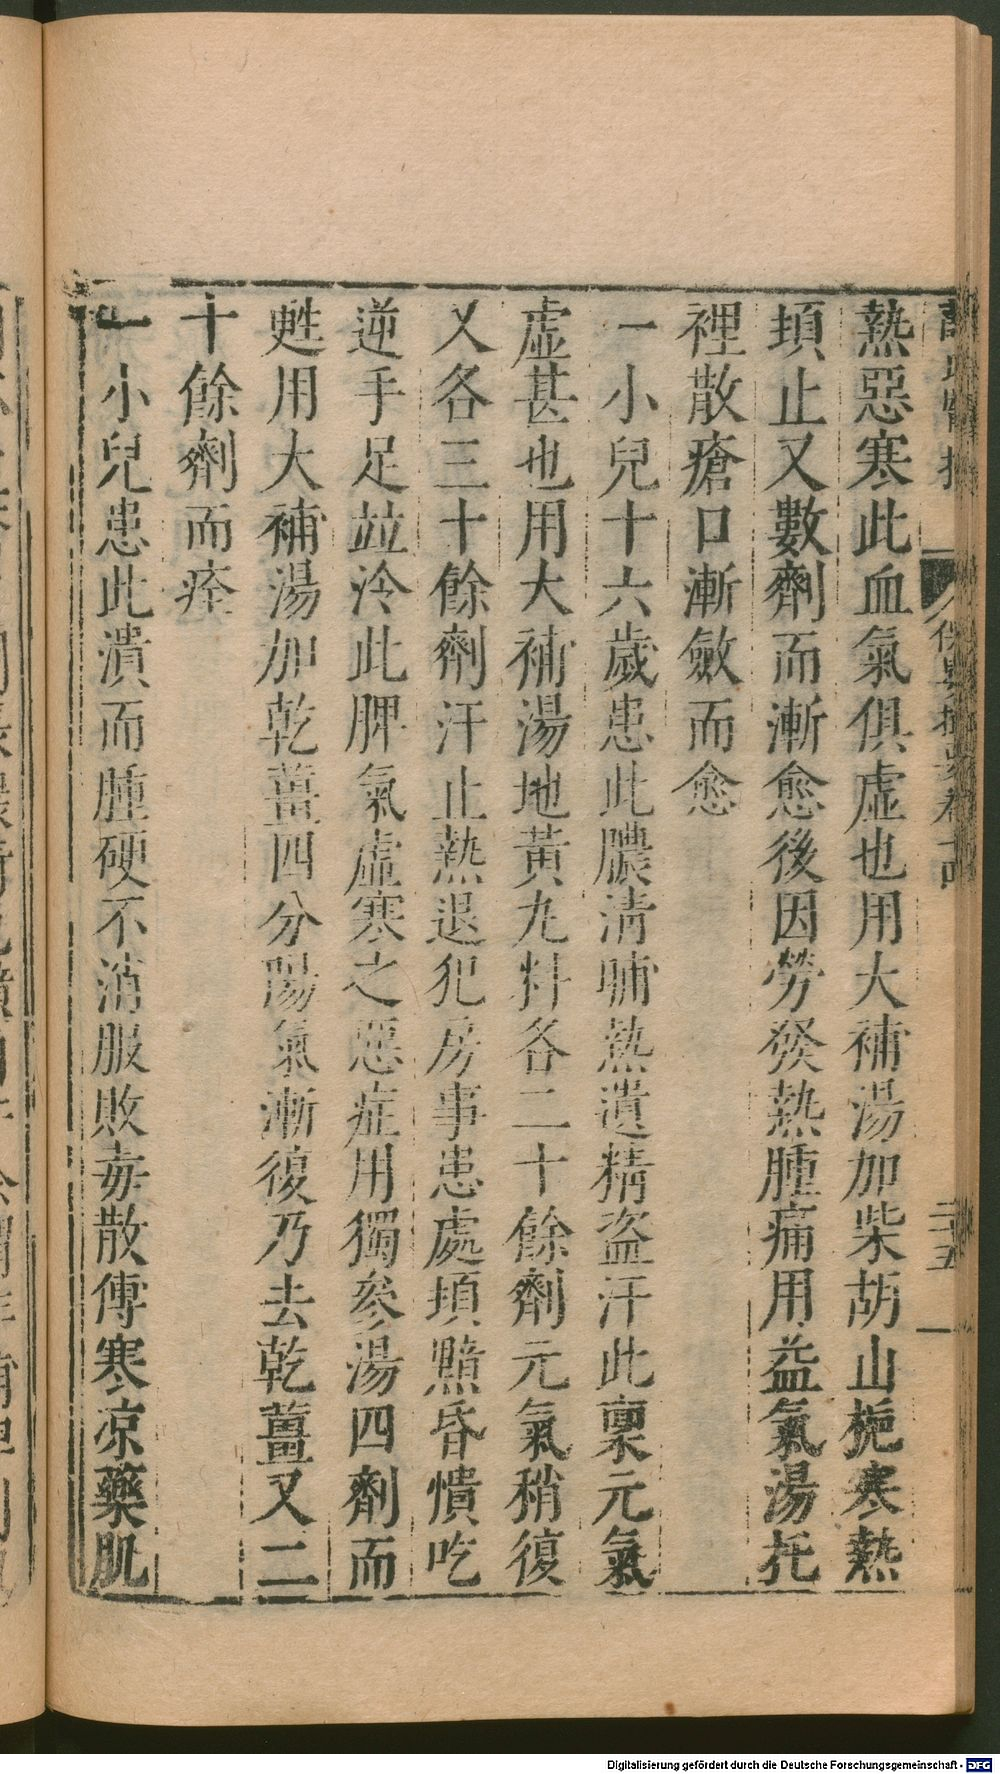 熱惡寒此血氣俱虛也用大補湯加柴胡山梔寒熱
頃止又數劑而漸愈後因勞發熱腫痛用益氣湯托
裡散瘡口漸斂而愈
一小兒十六歲患此膿清晡熱遺精盜汗此稟元氣
虛甚也用大補湯地黃丸料各二十餘劑元氣稍復
又各三十餘劑汗止熱退犯房事患處頃黯昏憒吃
逆手足竝冷此脾氣虛寒之惡症用獨參湯四劑而
甦用大補湯加乾薑四分陽氣漸復乃去乾薑又二
十餘劑而痊
一小兒患此潰而腫硬不消服敗毒散傅寒凉藥肌
Digitalisierung gefördert durch die Deutsche Forschungsgemeinschaft - DFG